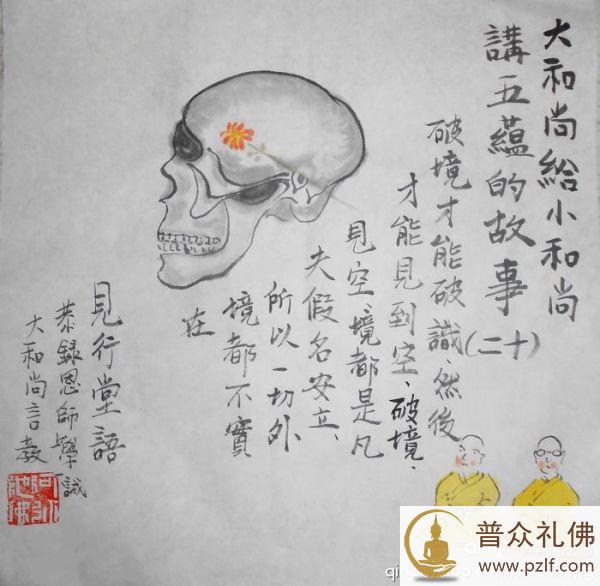 大和尚給小和尚
講五蘊的故事
(二十)
破境才能破識、然後
才能見到空、破境、
見空、境都是凡
夫假名安立、
所以一切外
境都不實
在
見行堂語
恭錄恩師學誠
大和尚言教
普众礼佛
www.pzlf.com